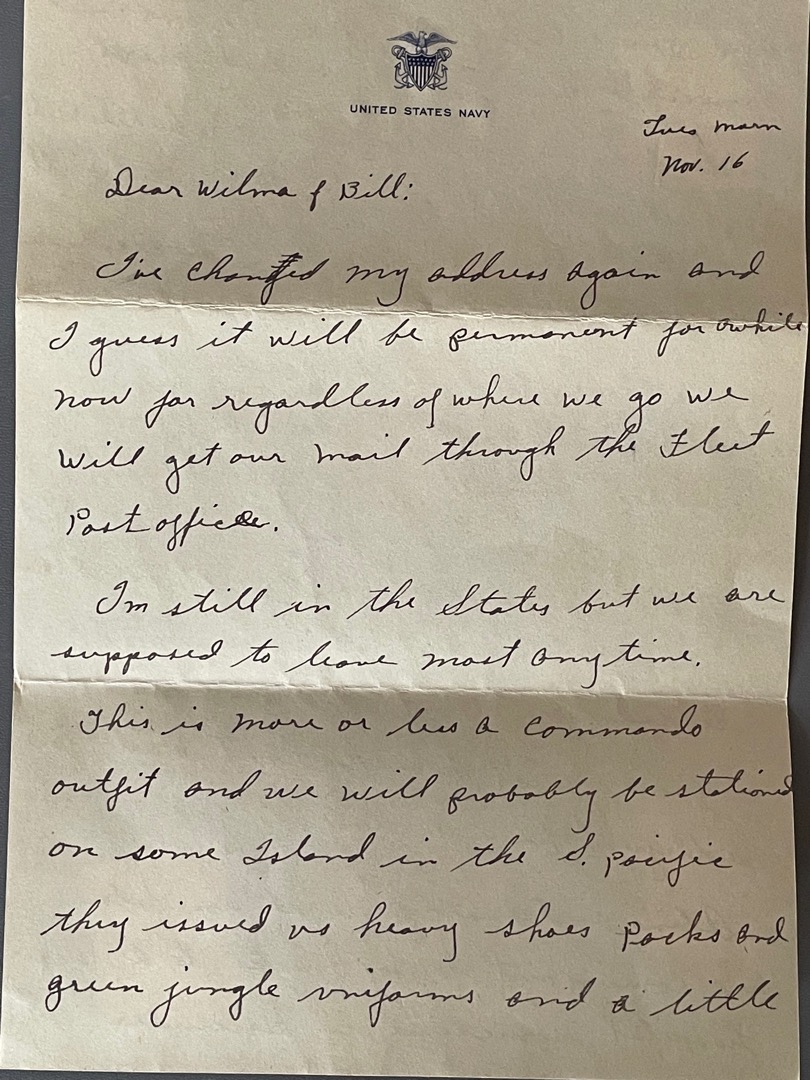 UNITED STATES NAVY
Tues morn
Nov. 16
Dear Wilma & Bill:
I've changed my address again and
I guess it will be permanent for awhile
now for regardless of where we go we
will get our mail through the Fleet
Post office.
I'm still in the States but we are
supposed to leave most anytime.
This is more or less a commando
outfit and we will probably be stationed
on some Island in the S. pacific
they issued us heavy shoes packs and
green jungle uniforms and a little